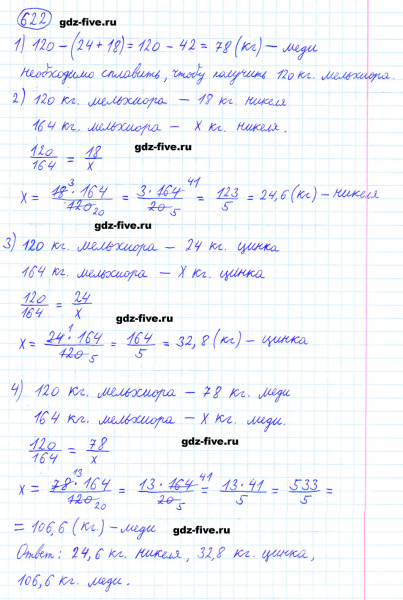 622 gdz-five.ru
1) 120 - (24 + 18) = 120 - 42 = 78 (кг) - меди
необходимо сплавить, чтобы получить 120 кг. мельхиора.
2) 120 кг. мельхиора - 18 кг. никеля
164 кг. мельхиора - x кг. никеля.
gdz-five.ru
120/164 = 18/x
x = 18 3 · 164 / 120 20 = 3 · 164 41 / 20 5 = 123/5 = 24,6 (кг) - никеля
gdz-five.ru
3) 120 кг. мельхиора - 24 кг. цинка
164 кг. мельхиора - x кг. цинка
120/164 = 24/x
gdz-five.ru
x = 24 1 · 164 / 120 5 = 164/5 = 32,8 (кг) - цинка
4) 120 кг. мельхиора - 78 кг. меди
164 кг. мельхиора - x кг. меди.
120/164 = 78/x gdz-five.ru
x = 78 13 · 164 / 120 20 = 13 · 164 41 / 20 5 = 13 · 41 / 5 = 533/5 =
= 106,6 (кг) - меди gdz-five.ru
Ответ: 24,6 кг. никеля, 32,8 кг. цинка,
106,6 кг. меди.